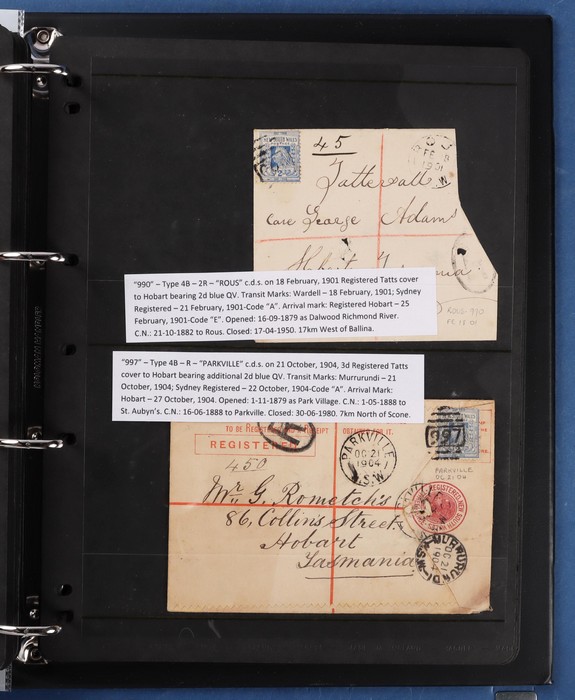 NEW SOUTH WALES
45
FE 18
1901
W
Tattersall
Care George Adams
Hobart Tasmania
"990" – Type 4B – 2R – "ROUS" c.d.s. on 18 February, 1901 Registered Tatts cover
to Hobart bearing 2d blue QV. Transit Marks: Wardell – 18 February, 1901; Sydney
Registered – 21 February, 1901-Code "A". Arrival mark: Registered Hobart – 25
February, 1901-Code "E". Opened: 16-09-1879 as Dalwood Richmond River.
C.N.: 21-10-1882 to Rous. Closed: 17-04-1950. 17km West of Ballina.
ROUS-990
FE 18 01
"997" – Type 4B – R – "PARKVILLE" c.d.s. on 21 October, 1904, 3d Registered Tatts
cover to Hobart bearing additional 2d blue QV. Transit Marks: Murrurundi – 21
October, 1904; Sydney Registered – 22 October, 1904-Code "A". Arrival Mark:
Hobart – 27 October, 1904. Opened: 1-11-1879 as Park Village. C.N.: 1-05-1888 to
St. Aubyn's. C.N.: 16-06-1888 to Parkville. Closed: 30-06-1980. 7km North of Scone.
REGISTERED
450
PARKVILLE
OC 21
1904
N.S.W
997
PARKVILLE
OC 21 04
Mr G. Rometch's
86, Collins Street
Hobart
Tasmania
MURRURUNDI
OC 21
1904
N.S.W